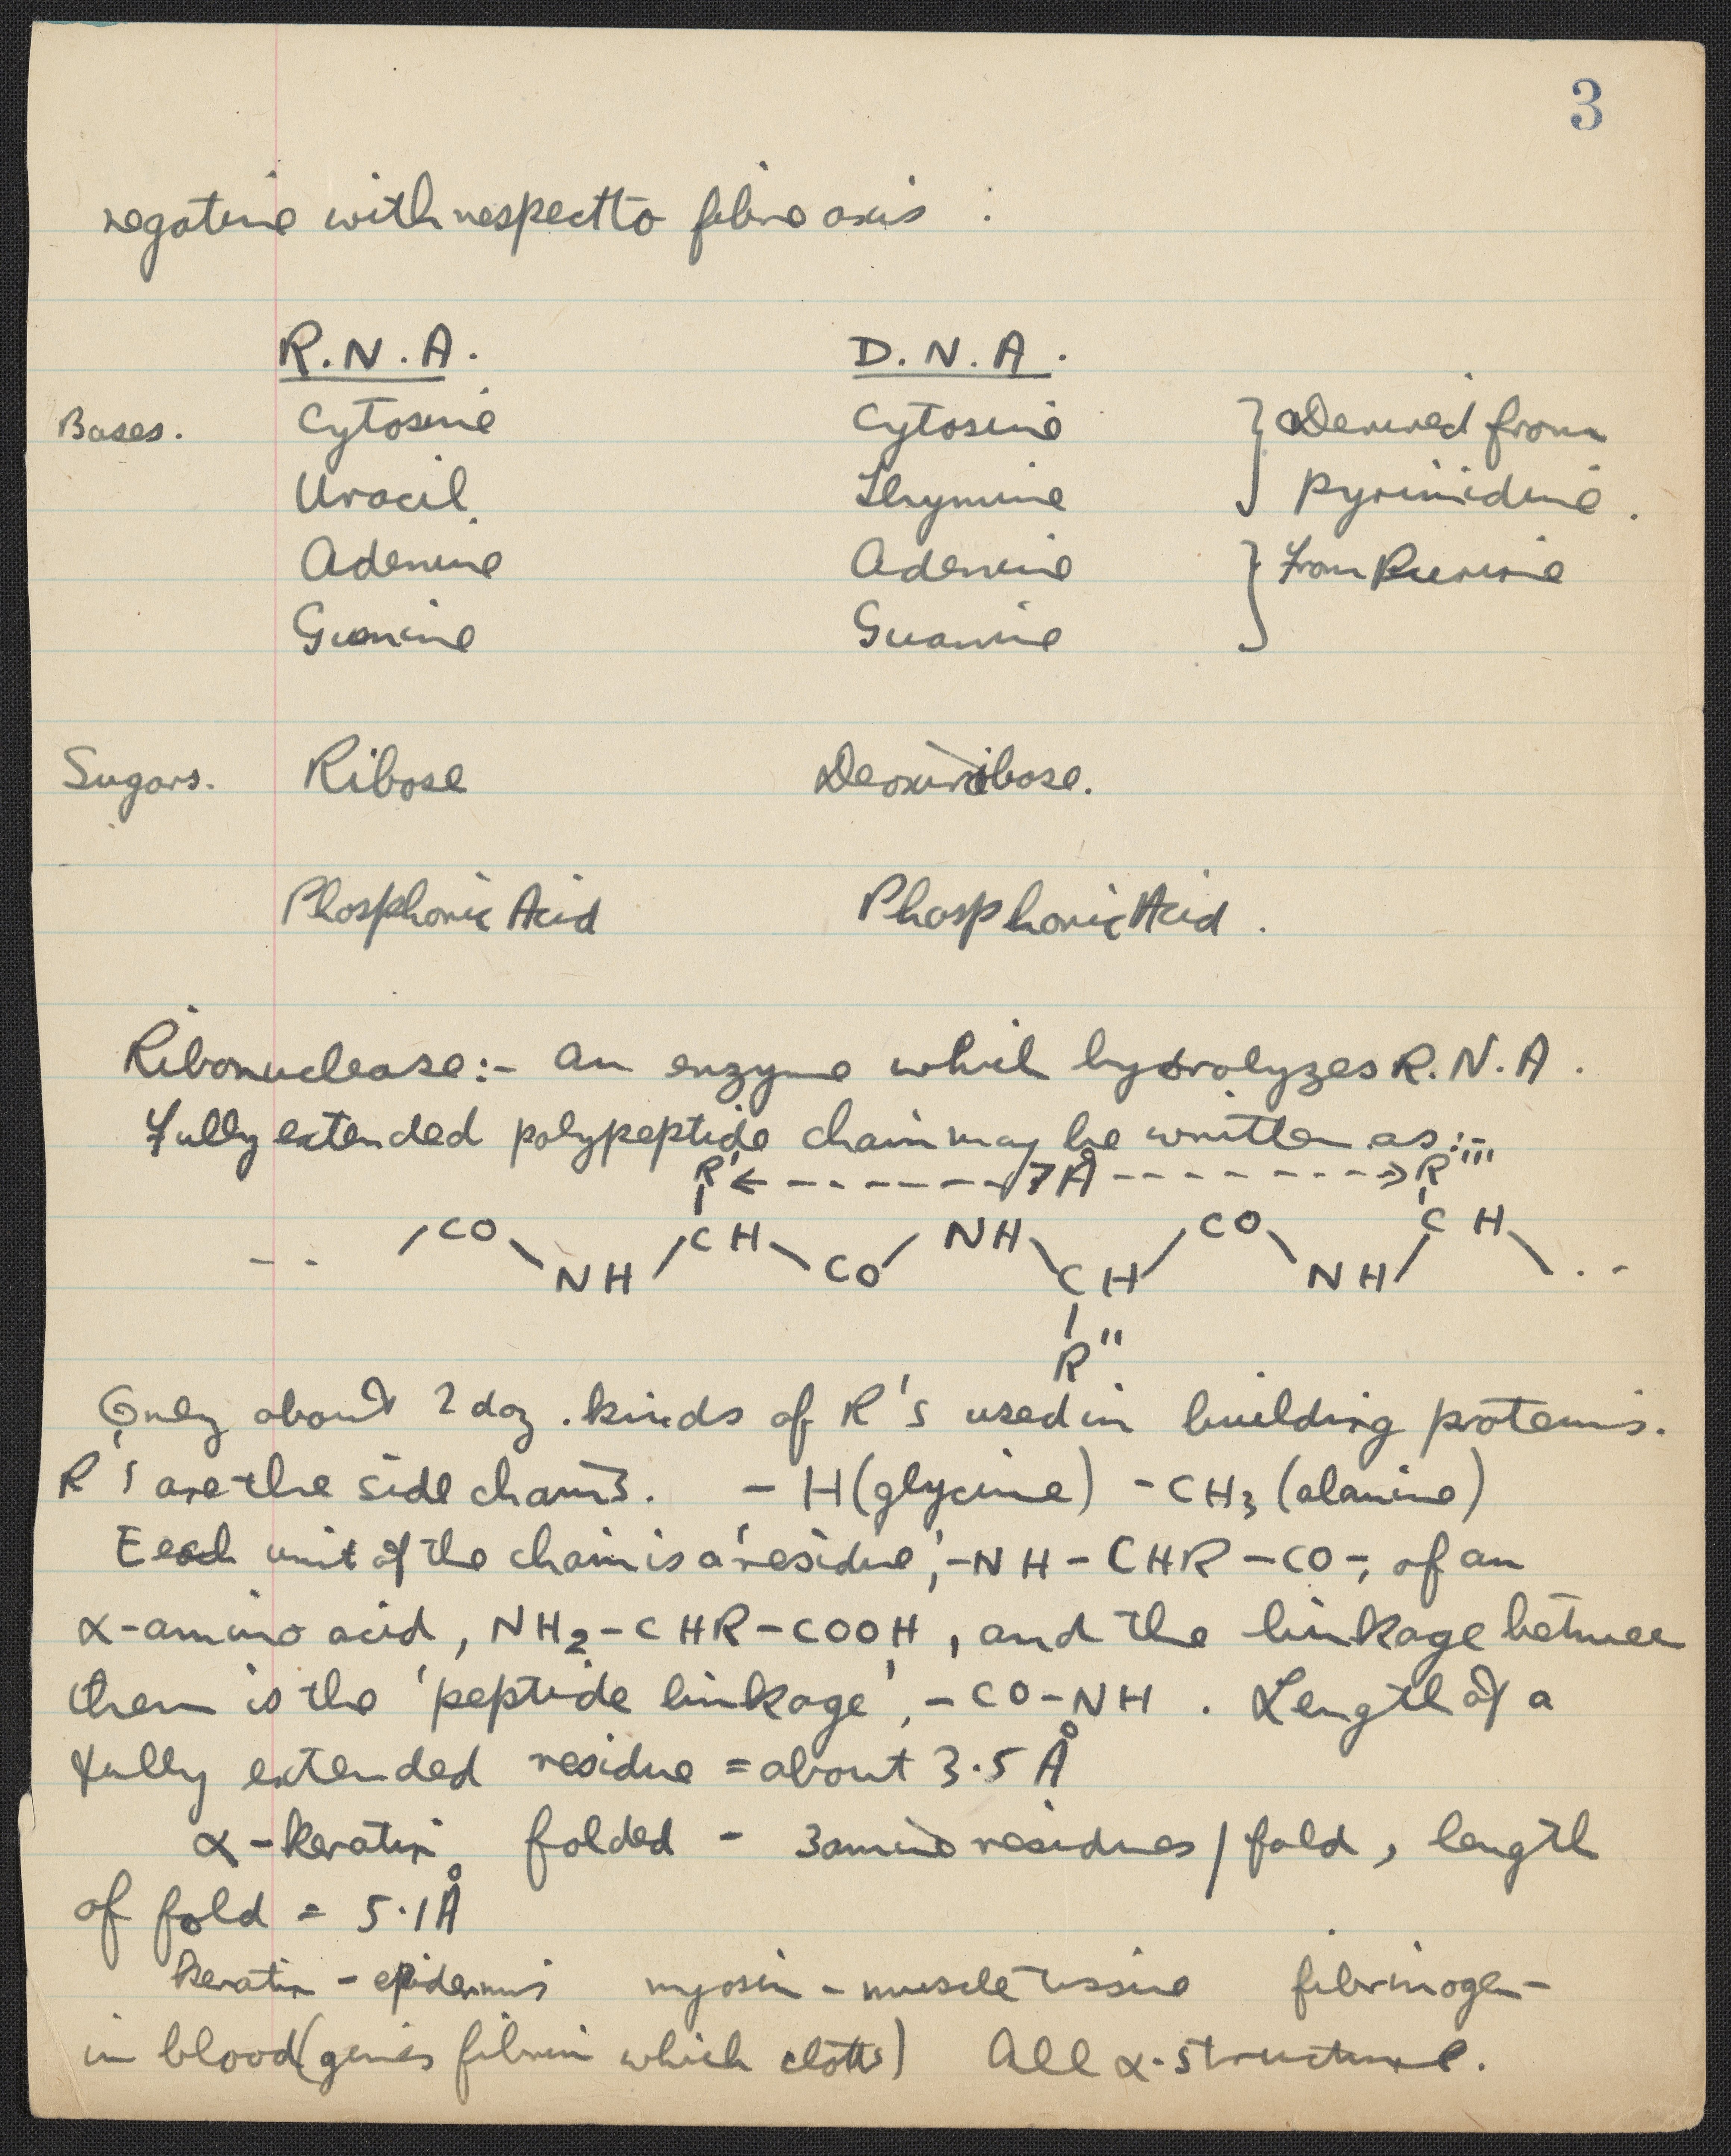 3
negative with respect to fibre axis :
R.N.A. D.N.A.
Bases. Cytosine Cytosine } Derived from
Uracil. Thymine pyrimidine.
Adenine Adenine } from Purine
Guanine Guanine
Sugars. Ribose Deoxyribose.
Phosphoric Acid Phosphoric Acid.
Ribonuclease:- an enzyme which hydrolyzes R.N.A.
Fully extended polypeptide chain may be written as:-
R' ←------7Å------→ R'''
-- / CO \ NH / CH \ CO / NH \ CH / CO \ NH / CH \ --
R''
Only about 2 doz. kinds of R's used in building proteins.
R's are the side chains. - H (glycine) - CH₃ (alanine)
Each unit of the chain is a 'residue', -NH-CHR-CO-, of an
α-amino acid, NH₂-CHR-COOH, and the linkage between
them is the 'peptide linkage', -CO-NH. Length of a
fully extended residue = about 3.5 Å
α-keratin folded - 3 amino residues/fold, length
of fold = 5.1 Å
keratin - epidermis myosin - muscle tissue fibrinogen -
in blood (gives fibrin which clots) All α-structure.